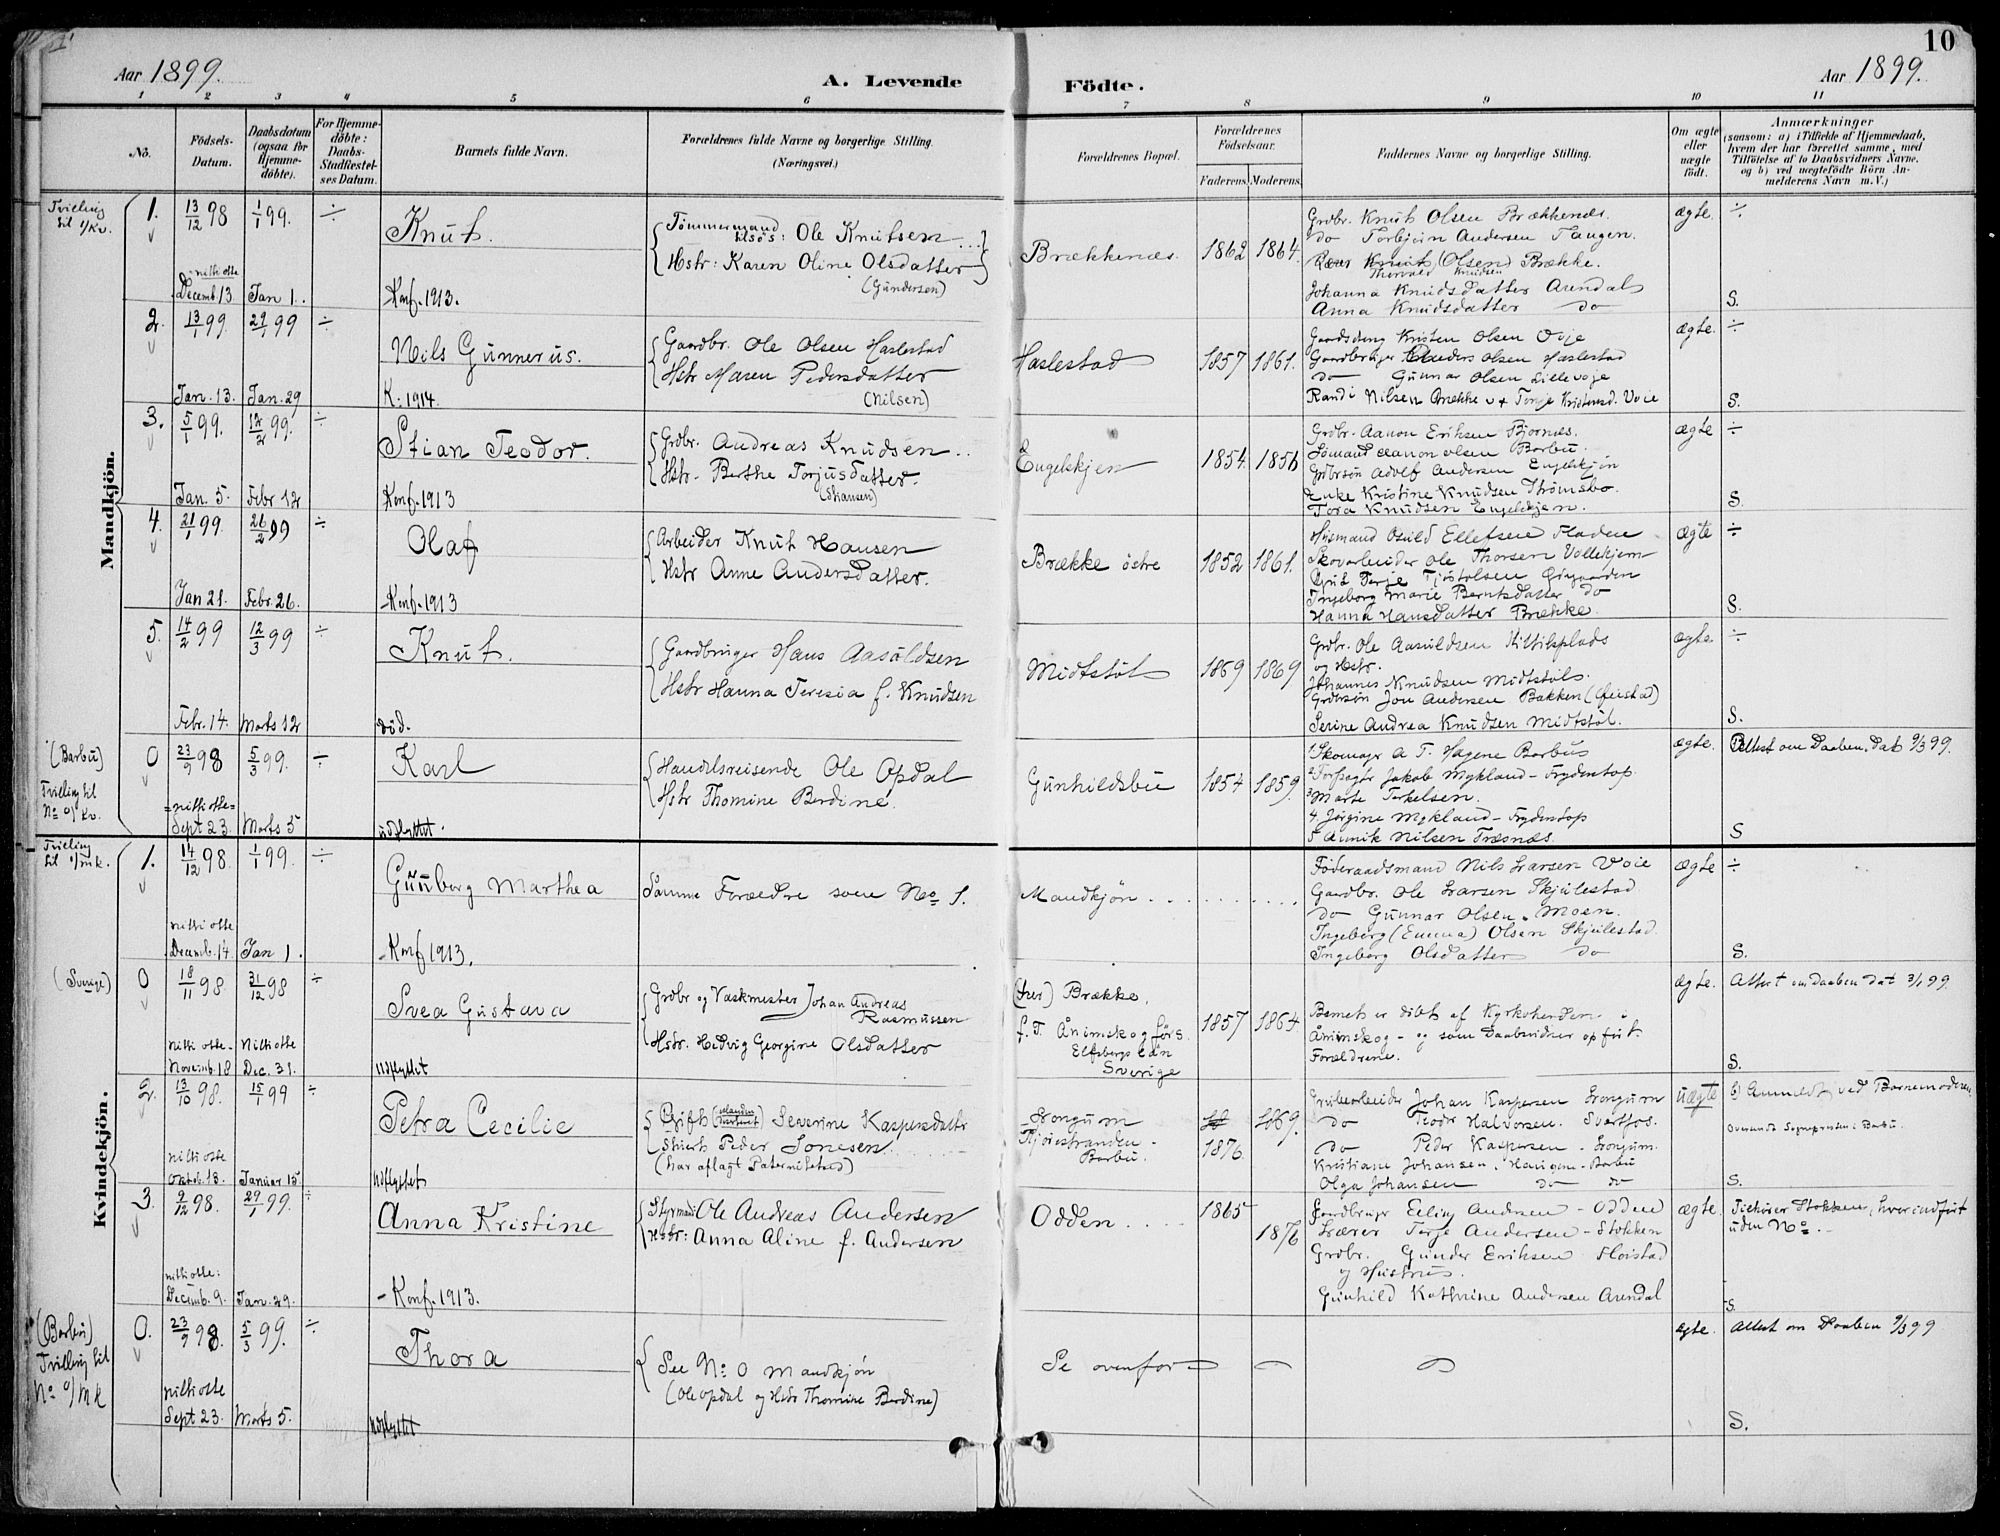 10
Aar 1899.
A. Levende
Födte.
Aar 1899.
1 2 3 4 5 6 7 8 9 10 11
No.
Födsels-
Datum.
Daabsdatum
(ogsaa for
Hjemme-
döbte).
For Hjemme-
döbte:
Daabs-
Stadfæstel-
ses Datum.
Barnets fulde Navn.
Forældrenes fulde Navne og borgerlige Stilling.
(Næringsvei.)
Forældrenes Bopæl.
Forældrenes
Födselsaar.
Faderens. Moderens.
Faddernes Navne og borgerlige Stilling.
Om ægte
eller
uægte
födt.
Anmærkninger
(saasom: a) i Tilfælde af Hjemmedaab,
hvem der har forrettet samme, med
Tilföielse af to Daabsvidners Navne.
og b) ved uægtefödte Börn An-
melderens Navn m. V.)
Mandkjön.
Tvilling
til 1/Kv.
1. 13/12 98 1/1 99. ÷
Knut.
Tömmermand tilsös: Ole Knutsen
Hstr: Karen Oline Olsdatter
(Gundersen)
Brækkenæs. 1862 1864.
Grdbr. Knut Olsen Brækkenæs.
do Torbjörn Andersen Tangen.
Knut (Olsen) Brække.
Thorvald Knudsen
Johanna Knudsdatter Arendal
Anna Knudsdatter do
ægte. ÷
S.
nitti otte
Decemb. 13 Jan 1.
Konf. 1913.
2. 13/1 99. 29/1 99 ÷
Nils Gunnerus.
Gaardbr. Ole Olsen Haslestad
Hstr Maren Pedersdatter
(Nilsen)
Haslestad 1857 1861.
Kristen Olsen Voje
Gaardbruger Anders Olsen Haslestad
do Gunnar Olsen Lillevoje
Randi Nilsen Brække Voie
ægte. ÷
S.
Jan. 13. Jan. 29
K: 1914.
3. 5/1 99. 12/2 99. ÷
Stian Teodor.
Grdbr. Andreas Knudsen
Hstr. Berthe Torjusdatter.
(Hansen)
Engelskjen 1854. 1856
Grdbr. Aanon Eriksen Bjornes.
Sömand Aanon Olsen Barbu.
Grdbrsön Adolf Andersen Engelskjön
Enke Kristine Knudsen Thromsbo.
Tora Knudsen Engelskjen.
ægte ÷
S.
Jan. 5. Febr 12
Konf. 1913
4. 21/1 99. 26/2 99 ÷
Olaf
Arbeider Knut Hansen
Hstr Anne Andersdatter.
Brække östre 1852 1861.
Husmand Osuld Ellefsen Fladen
Skovarbeider Ole Thorsen Vollekjern
Terje Tjöstolsen
Ingeborg Marie Berntsdatter do
Hanna Hansdatter Brække.
ægte ÷
S.
Jan 21. Febr. 26.
Konf. 1913
5. 14/2 99 12/3 99 ÷
Knut.
Gaardbruger Hans Aasuldsen
Hstr Hanna Teresia f. Knudsen
Midtstöl 1869 1869
Grdbr. Ole Aasuldsen Kittilsplads
og Hstr.
Johannes Knudsen Midtstöl.
Grdersön Jon Andersen Bakken
Serine Andrea Knudsen Midtstöl.
ægte. ÷
S.
Febr. 14. Marts 12
död.
(Barbu)
Tvilling til
No 0/Kv.
0 23/9 98 5/3 99. ÷
Karl
Handelsreisende Ole Opdal
Hstr Thomine Berdine.
Gunhildsbu 1854 1859.
1 Skomagr A. T. Hagene Barbu
2 Jakob Mykland - Frydentop.
3 Marte Terkelsen.
4 Jörgine Mykland - Frydentop
5 Annik Nilsen Træsnæs.
ægte. Attest om Daaben. Dat 9/3 99.
S
nitti otte
Sept 23. Marts 5
udflyttet.
Kvindekjön.
Tvilling
til 1/mk.
1. 14/12 98. 1/1 99. ÷
Gunborg Marthea
Samme Forældre som No 1.
Mandkjön . . . . . . . . . .
Föderaadsmand Nils Larsen Voie
Gaardbr. Ole Larsen Skjulestad.
do Gunnar Olsen Moen.
Ingeborg (Emma) Olsen Skjulestad.
Ingeborg Olsdatter do
ægte ÷
S.
nitti otte
Decemb. 14. Jan 1.
Konf 1913.
(Sverige)
0 18/11 98. 31/12 98 ÷
Svea Gustava
Grdbr og Vaskmester Johan Andreas
Rasmussen
Hstr. Hedvig Georgine Olsdatter
(her) Brække.
f. T. Ånimskog förs.
Elfsborgs Län
Sverige
1857 1864.
Barnet er döbt af Kyrkoherden i
Ånimskog - og som Daabsvidner opfört
Forældrene.
ægte. Attest om Daaben dat 3/1 99.
S.
nitti otte Nitti otte
Novemb. 18 Dec. 31.
udflyttet
2. 13/10 98. 15/1 99 ÷
Petra Cecilie
Gift Severine Kaspersdattr
Peder Jonesen
(har aflagt Paternitetsed)
Longum
Barbu.
1869.
1876.
Grubearbeider Johan Kaspersen Longum
do Teodr Halvorsen. Svartfos.
do Peder Kaspersen - Longum.
Kristiane Johansen, Haugene - Barbu
Olga Johansen do do
uægte b) Anmeldt ved Barnemoderen.
Oversendt Sognepræsten i Barbu.
S.
nitti otte
Oktob. 13. Januar 15
udflyttet
3. 9/12 98. 29/1 99. ÷
Anna Kristine
Styrmand Ole Andreas Andersen
Hstr: Anna Aline f. Andersen
Odden . . . . 1865 1876
Gaardbruger Erling Andersen - Odden
Lærer Terje Andersen - Stokken
Grdbr. Gunder Eriksen Floistad
og Hustru.
Gunhild Kathrine Andersen Arendal
ægte. Tilhörer Stokken, hvor indfört
uden No.
S.
nitti otte:
Decemb. 9. Jan. 29.
Konf. 1913.
(Barbu)
Tvilling til
No 0/MK
0. 23/9 98. 5/3 99. ÷
Thora
See No: 0 Mandkjön
(Ole Opdal og Hstr Thomine Berdine)
Se ovenfor
ægte. Attest om Daaben 9/3 99
S.
nitti otte
Sept 23. Marts 5.
udflyttet